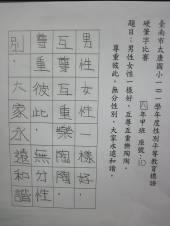 臺南市太康國小一〇一學年度性別平等教育標語
硬筆字比賽
四年甲班 座號:
題目:男性女性一樣好,互尊互重樂陶陶,
尊重彼此,無分性別,大家永遠和諧。
男性女性一樣好,
互尊互重樂陶陶,
尊重彼此,無分性
別,大家永遠和諧